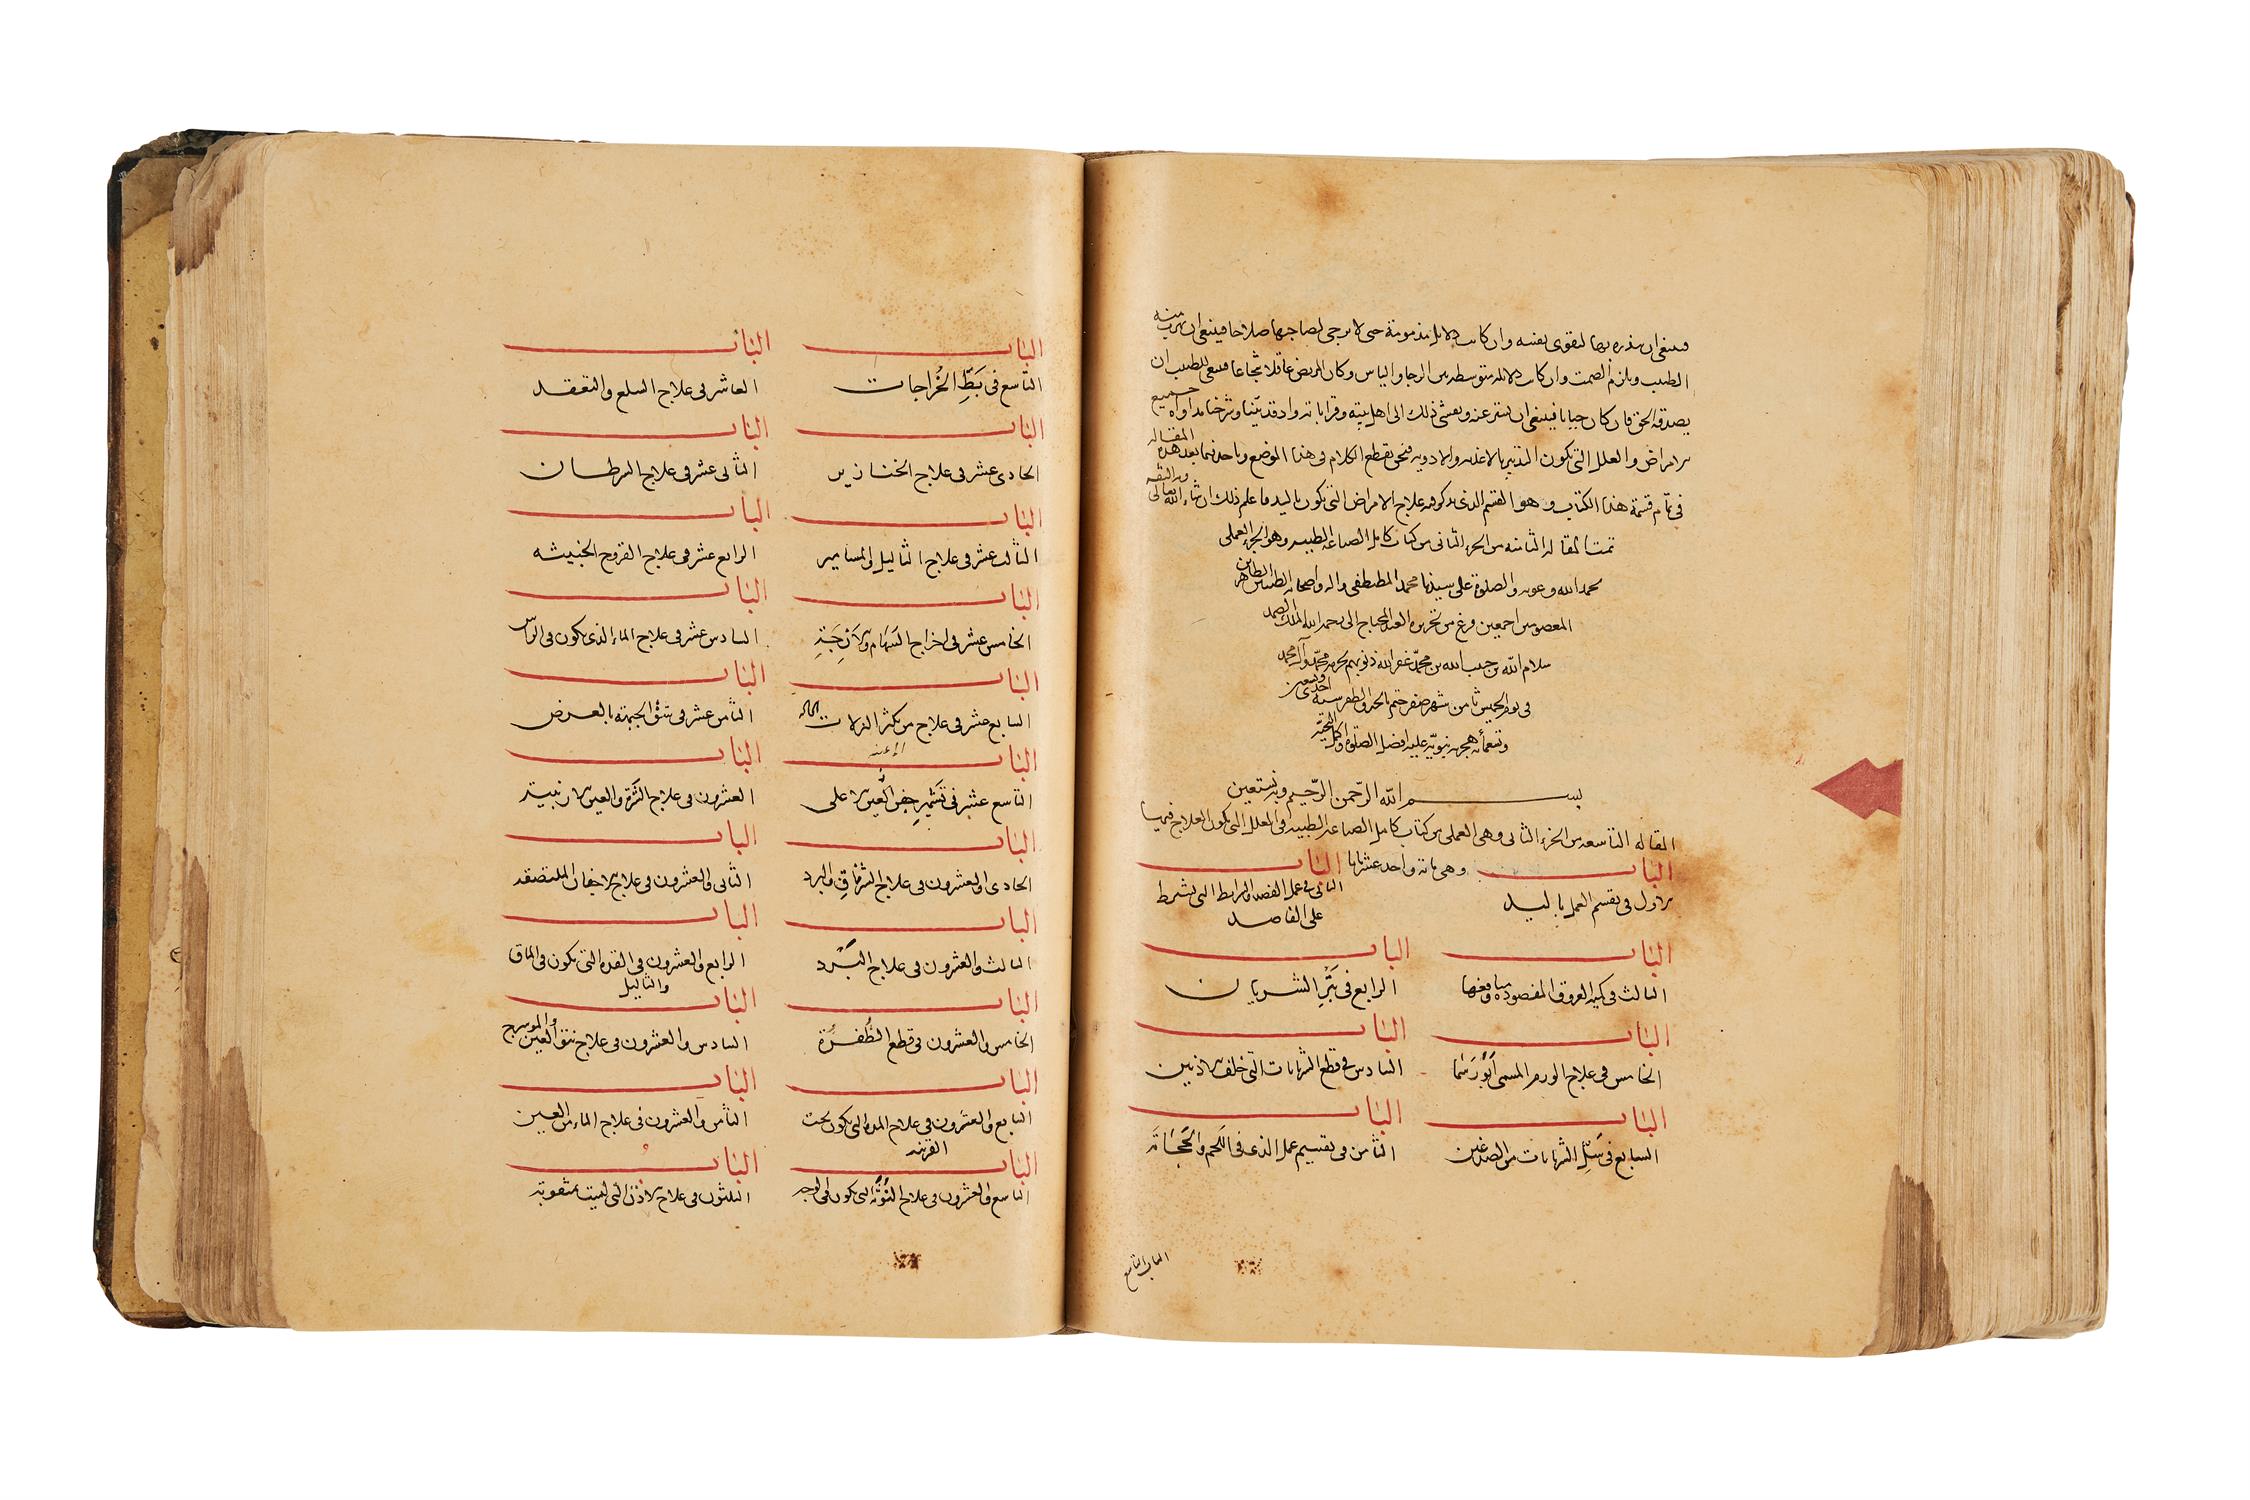 فينبغي ان ينذره بها لتقوى نفسه وان كانت دلايل مذمومة حتى لا يرجى لصاحبها صلاحا فينبغي ان يهرب منه
الطبيب ويلزم الصمت وان كانت دلايله متوسطه بين الرجا والياس وكان المريض عاقلا شجاعا فينبغي للطبيب ان
يصدقه الحق فان كان جبانا فينبغي ان يستر عنه ويفشي ذلك الى اهل بيته وقراباته واذ قد بيّنا وشرحنا مداواة جميع
الامراض والعلل التي تكون المداواة بالاغذيه والادويه فنحن نقطع الكلام في هذا الموضع وناخذ فيما بعد هذه المقاله
في تمام قسمة هذا الكتاب وهو القسم الذي نذكر فيه علاج الامراض التي تكون باليد فاعلم ذلك ان شاء الله تعالى وبه الثقه
تمت المقاله الثامنه من الجزء الثاني من كتاب كامل الصناعه الطبيه وهو الجزء العملي
بحمد الله وعونه والصلوة على سيدنا محمد المصطفى واله واصحابه الطيبين الطاهرين
المعصومين اجمعين وفرغ من تحريره العبد المحتاج الى رحمة الله الملك الصمد
سلام الله بن حبيب الله بن محمّد غفر الله ذنوبهم بحرمة محمّد وآل محمد
في يوم الخميس ثامن شهر صفر ختم بالخير والظفر سنه احدى وتسعين
وتسعمأئه هجريه نبويّه عليه افضل الصلوة واكمل التحيّه
بسم الله الرّحمن الرّحيم وبه نستعين
المقاله التاسعه من الجزء الثاني وهي العملي من كتاب كامل الصناعه الطبيه في العلل التي يكون العلاج فيها
الباب وهي مائه واحد عشر بابا الباب
الاول في تقسيم العمل باليد الثاني في عمل الفصد والشرايط التي تشرط
على الفاصد
الباب الباب
الثالث في كميه العروق المفصوده ومنافعها الرابع في بَتْرِ الشريان
الباب الباب
الخامس في علاج الورم المسمى اَبُورَسْمَا السادس في قطع الشريانات التي خلف الاذنين
الباب الباب
السابع في سَلِّ الشريانات من الصدغين الثامن في تقسيم عمل الذي في اللَحم والحجَامَة
الباب التاسع
الباب الباب
التاسع في بَطِّ الخُراجات العاشر في علاج السلع والتعقد
الباب الباب
الحادي عشر في علاج الخنازير الثاني عشر في علاج السرطان
الباب الباب
الثالث عشر في علاج الثاليل والمسامير الرابع عشر في علاج القروح الخبيثه
الباب الباب
الخامس عشر في اخراج السهام والاَزِجَّةِ السادس عشر في علاج الماء الذي يكون في الراس
الباب الباب
السابع عشر في علاج من تكثر النزلات الى الثامن عشر في شق الجبهة بالعرض
الباب الاعينه الباب
التاسع عشر في تَشْميرِ جفن العَين الاعلى العشرون في علاج الشَتْرة والعين الارنبيه
الباب الباب
الحادي والعشرون في علاج الشرناقِ والبرد الثاني والعشرون في علاج الاجفان الملتصقه
الباب الباب
الثالث والعشرون في علاج البَرَد الرابع والعشرون في الغده التي تكون في الماق
والثاليل
الباب الباب
الخامس والعشرون في قطع الظُفرَة السادس والعشرون في علاج نتو العين والموسرج
الباب الباب
السابع والعشرون في علاج المده التي تكون تحت الثامن والعشرون في علاج الماء من العين
القرنيه
الباب الباب
التاسع والعشرون في علاج التُوثَة التي تكون في الوجه الثلثون في علاج الاذن التي ليست بمثقوبه